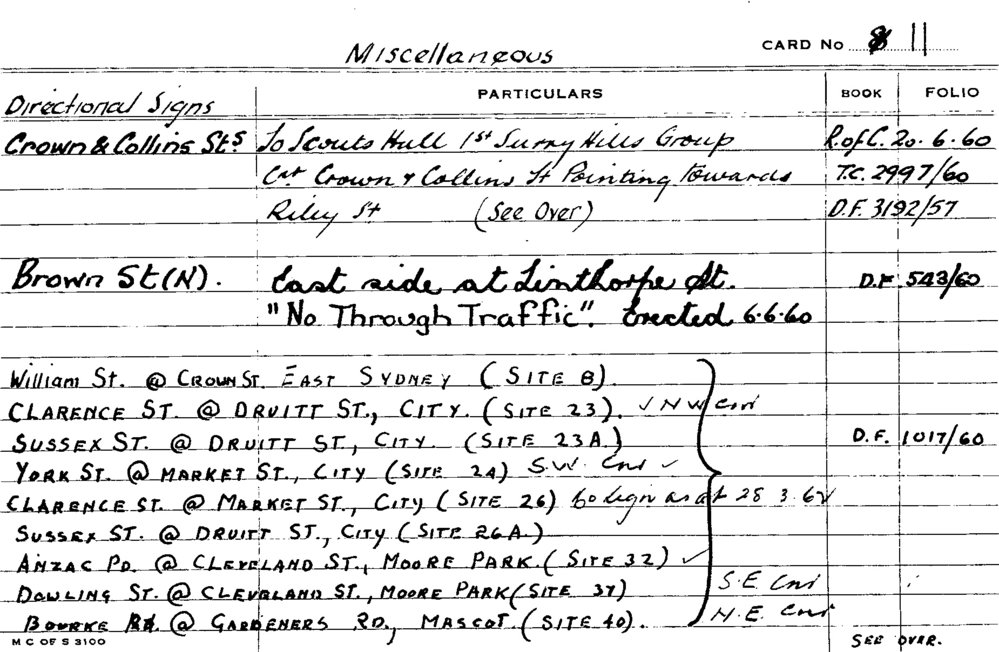 Miscellaneous CARD No 8 11
Directional Signs PARTICULARS BOOK FOLIO
Crown & Collins Sts To Scouts Hall 1st Surry Hills Group R.ofC. 20.6.60
Crown & Collins St Pointing Towards T.C. 2997/60
Riley St (See Over) D.F. 3192/57
Brown St (N). East side at Linthorpe St. D.F. 543/60
"No Through Traffic". Erected 6.6.60
William St. @ CROWN ST. EAST SYDNEY (SITE 8).
CLARENCE ST. @ DRUITT ST., CITY. (SITE 23). ✓ N W Cnr
SUSSEX ST. @ DRUITT ST., CITY. (SITE 23A.) D.F. 1017/60
YORK ST. @ MARKET ST., CITY (SITE 24) S.W. Cnr ✓
CLARENCE ST. @ MARKET ST., CITY (SITE 26) as at 28 3 62
SUSSEX ST. @ DRUITT ST., CITY (SITE 26A.)
ANZAC PD. @ CLEVELAND ST., MOORE PARK. (SITE 32) ✓
DOWLING ST. @ CLEVELAND ST., MOORE PARK (SITE 37) S.E Cnr
BOURKE RD. @ GARDENERS RD., MASCOT. (SITE 40). N.E. Cnr
M C OF S 3100 SEE OVER.